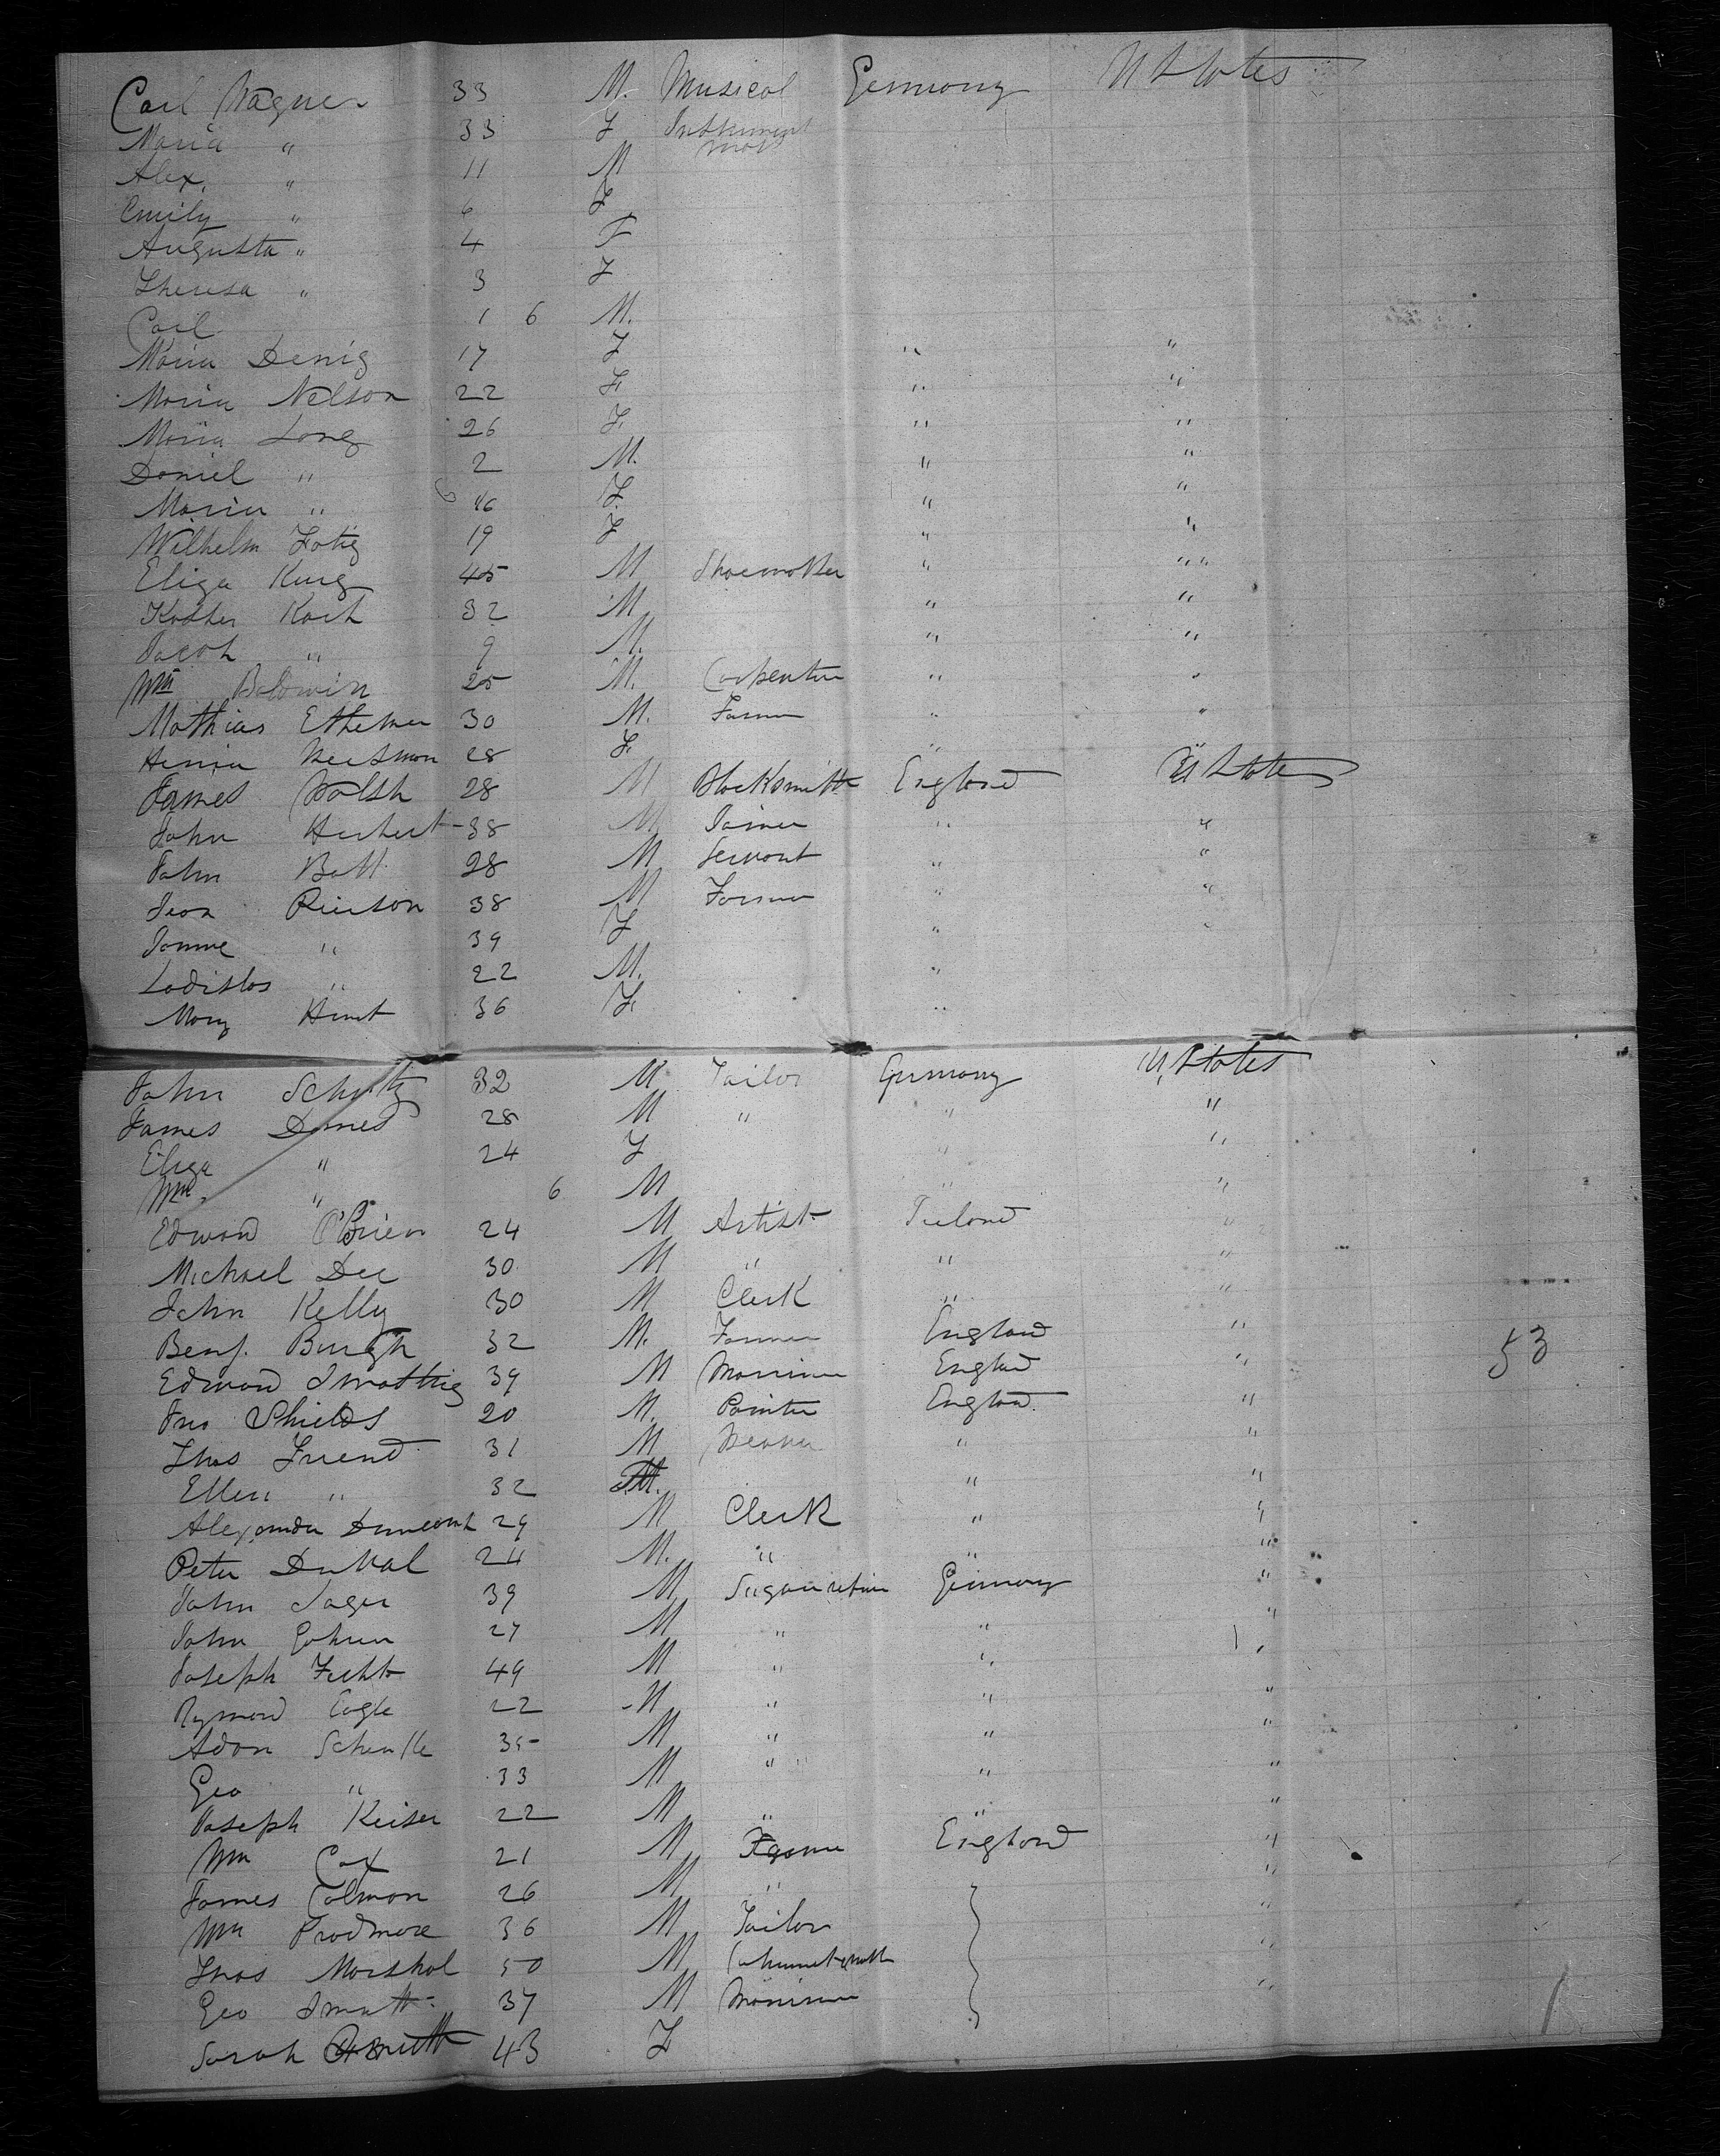 Carl Wagner 33 M. Musical Germany U States
Maria " 33 F Instrument
Alex. " 11 M
Emily " 6 F
Augusta " 4 F
Theresa " 3 F
Carl 1 6 M.
Maria Denig 17 F " "
Maria Nelson 22 F. " "
Maria Long 26 F. " "
Daniel " 2 M. " "
Maria " F. " "
Wilhelm 19 F " "
Eliza King 45 M Shoemaker " "
Koch 32 M " "
Jacob " 9 M. " "
Wm Baldwin 25 M. Carpenter " "
Mathias 30 M. Farmer " "
28 F. "
James Walsh 28 M Blacksmith England U States
John Herbert 38 M Joiner " "
John Ball 28 M Servant " "
Pierson 38 M Farmer " "
" 39 F " "
Ladislas " 22 M. "
Mary Hunt 36 F. "
John Schultz 32 M Tailor Germany U. States
James 28 M " " "
Eliza " 24 F " "
Wm. " 6 M " "
Edward O'Brien 24 M Artist Ireland "
Michael Dee 30 M " " "
John Kelly 30 M Clerk " "
Benj. Burgh 32 M. Farmer England "
Edward 39 M Marriner England "
Jno Shields 20 M. Painter England "
Thos Friend 31 M Weaver " "
Ellen " 32 " "
Alexander 29 M Clerk " "
Peter Duval 24 M. " " "
John Sager 39 M Germany "
John 27 M " " "
Joseph 49 M " " "
22 M " " "
Adam 35 M " " "
Geo " 33 M " " "
Joseph Keiser 22 M " " "
Wm Cox 21 M England "
James Colman 26 M " "
Wm Prodmore 36 M Tailor "
Thos Marshal 50 M "
Geo 37 M Marriner "
Sarah 43 F
53